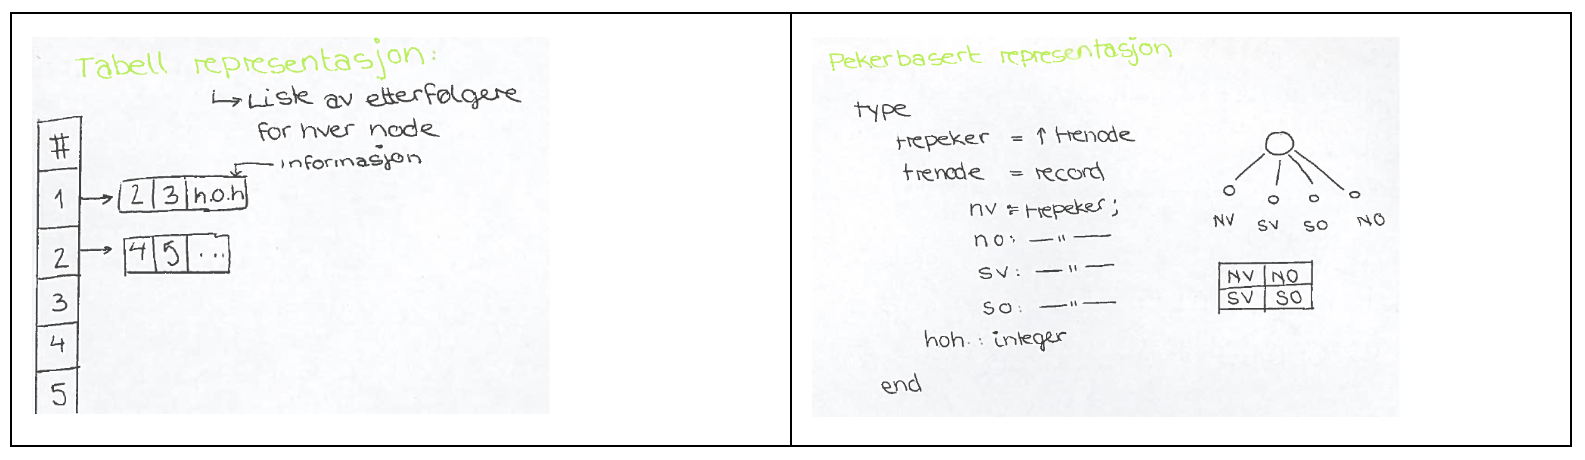 Tabell representasjon:
↳ Liste av etterfølgere
for hver node
informasjon
#
1 → 2 3 h.o.h
2 → 4 5 ...
3
4
5
Pekerbasert representasjon
type
trepeker = ↑ trenode
trenode = record
nv = trepeker;
no: —"—
sv: —"—
so: —"—
hoh.: integer
end
NV SV SO NO
NV NO
SV SO